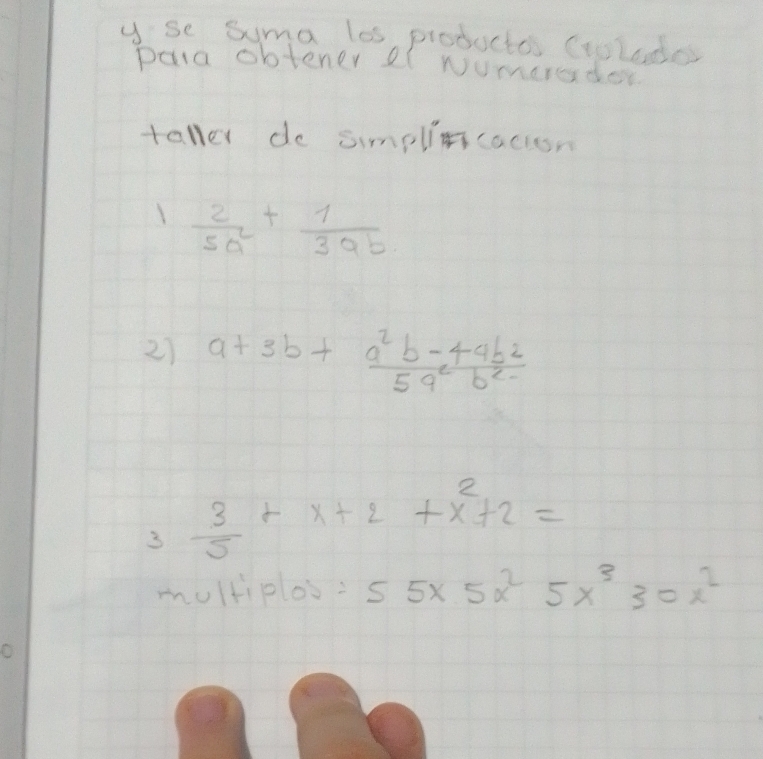 y se suma los productos cruzados
para obtener el Numerador
taller de simplificacion
1 2/5a² + 1/3ab
2) a+3b+ a²b-4ab2/5a²b²-
3 3/5 + x+2 +x²+2 =
multiplos: 5 5x 5x² 5x³ 30x²